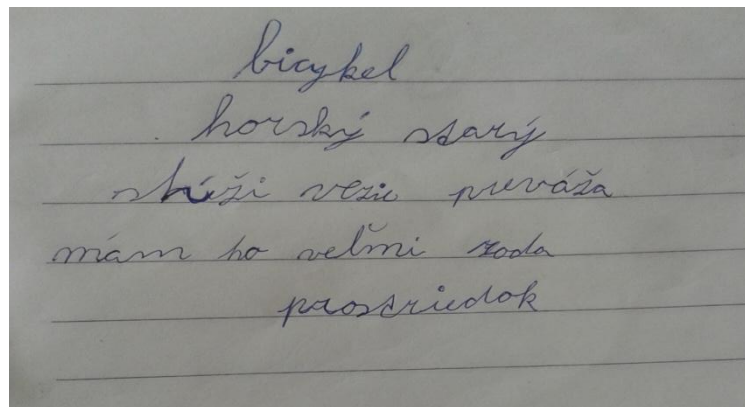 bicykel
horský starý
slúži vezie preváža
mám ho veľmi rada
prostriedok